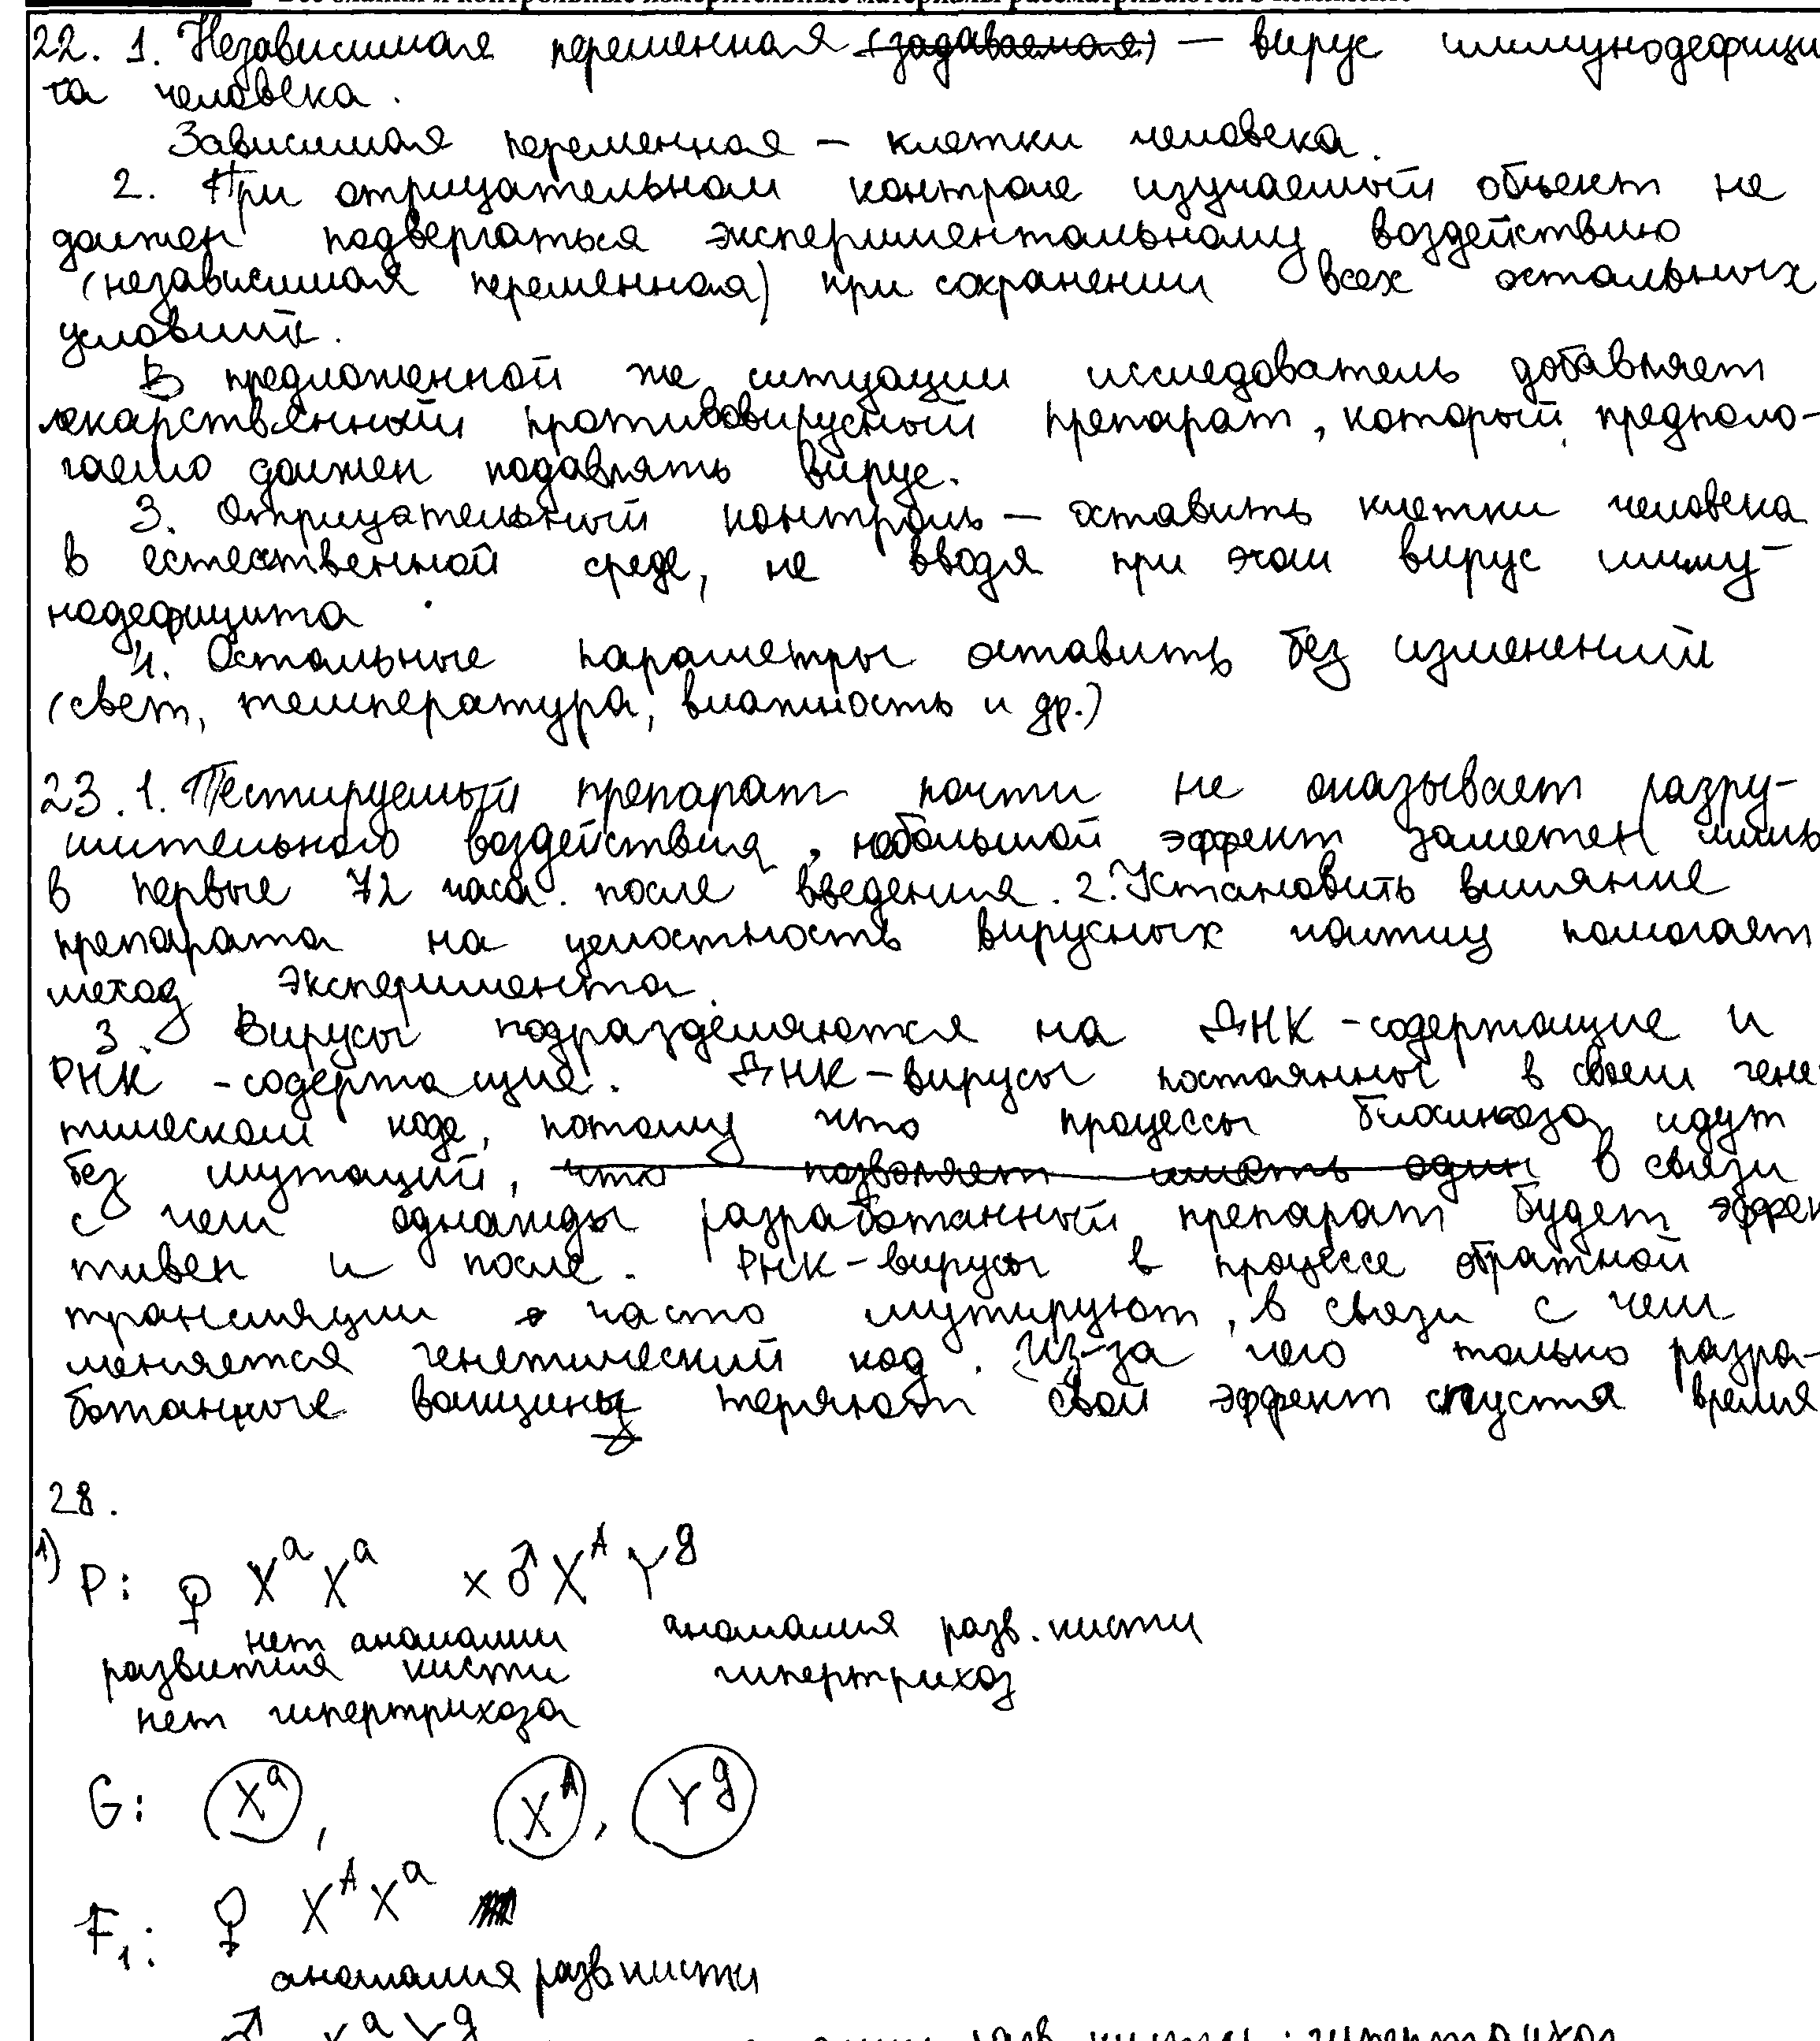 Все бланки и контрольные измерительные материалы рассматриваются в комплекте
22. 1. Независимая переменная (задаваемая) – вирус иммунодефици
та человека.
Зависимая переменная – клетки человека.
2. При отрицательном контроле изучаемый объект не
должен подвергаться экспериментальному воздействию
(независимая переменная) при сохранении всех остальных
условий.
В предложенной же ситуации исследователь добавляет
лекарственный противовирусный препарат, который предполо-
гаемо должен подавлять вирус.
3. Отрицательный контроль – оставить клетки человека
в естественной среде, не вводя при этом вирус имму-
нодефицита.
4. Остальные параметры оставить без изменений
(свет, температура, влажность и др.)
23. 1. Тестируемый препарат почти не оказывает разру-
шительного воздействия, небольшой эффект заметен лишь
в первые 72 часа после введения. 2. Установить влияние
препарата на целостность вирусных частиц помогает
метод эксперимента.
3. Вирусы подразделяются на ДНК-содержащие и
РНК-содержащие. ДНК-вирусы постоянны в своем гене
тическом коде, потому что процессы идут
без мутаций, что позволяет иметь один в связи
с чем однажды разработанный препарат будет эффек
тивен и после. РНК-вирусы в процессе обратной
трансляции часто мутируют, в связи с чем
меняется генетический код. Из-за чего только разра-
ботанные вакцины теряют свой эффект спустя время
28.
1) P: ♀ XᵃXᵃ × ♂ XᴬYᵍ
нет аномалии аномалия разв. кисти
развития кисти гипертрихоз
нет гипертрихоза
G: Xᵃ, Xᴬ, Yᵍ
F₁: ♀ XᴬXᵃ
аномалия разв. кисти
♂ XᵃYᵍ разв. кисти; гипертрихоз